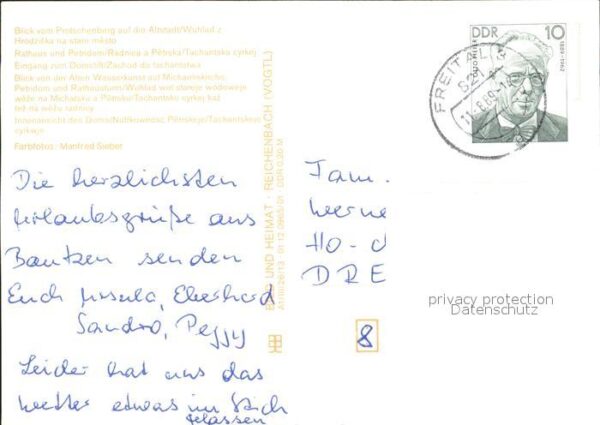 Blick vom Protschenberg auf die Altstadt/Wuhlad z
Hrodźiška na stare město
Rathaus und Petridom/Radnica a Pětrska/Tachantska cyrkej
Eingang zum Domstift/Zachod do tachantstwa
Blick von der Alten Wasserkunst auf Michaeliskirche,
Petridom und Rathausturm/Wuhlad wot stareje wodoweje
wěže na Michałsku a Pětrsku/Tachantsku cyrkej kaž
tež na wěžu radnicy
Innenansicht des Domes/Nutřkowność Pětrskeje/Tachantskeje
cyrkwje
Farbfotos: Manfred Sieber
BILD UND HEIMAT · REICHENBACH (VOGTL)
DDR 0,20 M
DDR 10
1889–1962
FREITAL
821
Die herzlichsten
Urlaubsgrüße aus
Bautzen senden
Euch Ursula, Eberhard
Sandro, Peggy
Leider hat uns das
Wetter etwas im Stich
gelassen
Fam.
Werne
Ho-
DRE
8
privacy protection
Datenschutz